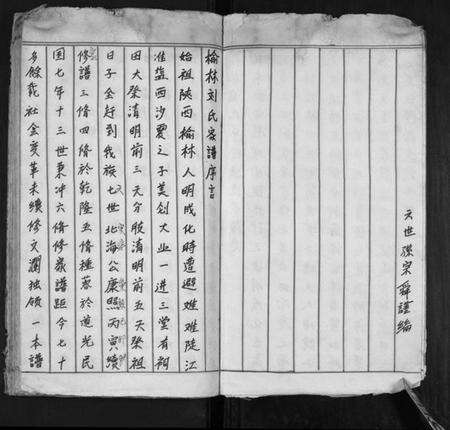 六世孫宗舜謹編
榆林刘氏家譜序言
始祖陝西榆林人明成化時遭避难难陡江
淮盐西沙夏之子美创大业一进三堂有祠
田大祭清明前三天分股清明前五天祭祖
日子全赶到我族七世北海公康熙丙寅續
修譜三修四修於乾隆五修種惠於道光民
国七年十三世秉冲六修修家譜距今七十
多餘載社会变革未續修文瀾独领一本譜